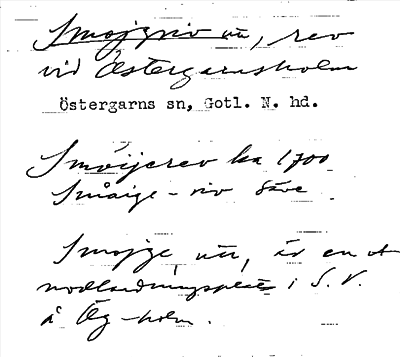 Smojgriv n, rev
vid Östergarnsholm
Östergarns sn, Gotl. N. hd.
Smöijerev ka 1700
Småige-riv Säve
Smojge, är en
nödlandningsplats i S.V.
å Ög-holm.